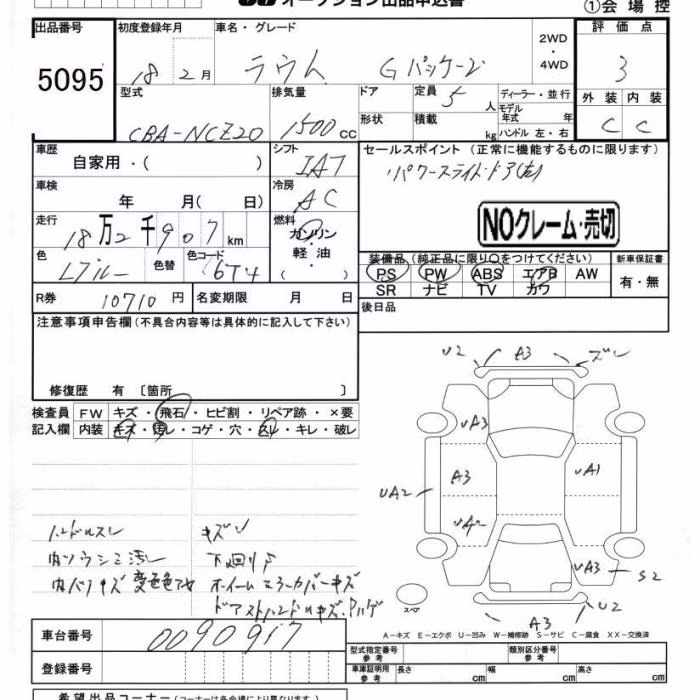 オークション出品申込書
①会場控
出品番号 初度登録年月 車名・グレード 2WD・4WD 評価点
5095 18 2月 ラウム Gパッケージ 3
型式 排気量 ドア 定員 5人 ディーラー・並行 外装 内装
CBA-NCZ20 1500cc 形状 積載 kg モデル年式 年 ハンドル 左・右 C C
車歴 自家用・( ) シフト IAT セールスポイント(正常に機能するものに限ります)
車検 年 月( 日) 冷房 AC パワースライドドア(左)
走行 18万2千907km 燃料 ガソリン・軽油・ NOクレーム・売切
色 Lブルー 色替 色コード 6T4 装備品(純正品に限り○をつけてください) 新車保証書
PS PW ABS エアB AW 有・無
R券 10710円 名変期限 月 日 SR ナビ TV カワ
注意事項申告欄(不具合内容等は具体的に記入して下さい) 後日品
修復歴 有〔箇所 〕
検査員記入欄 FW キズ・飛石・ヒビ割・リペア跡・×要
内装 キズ・汚レ・コゲ・穴・スレ・キレ・破レ
U2 A3 ズレ
UA3
A3 UA1
UA2
UA2
UA3 S2
U2
A3
スペア
ハンドルスレ キズソ
内ソウシミ汚レ 下廻りサ
内バリキズ変色色アセ ホイールミラーカバーキズ
ドアストハンドルキズ・Pハゲ
A-キズ E-エクボ U-凹み W-補修跡 S-サビ C-腐食 XX-交換済
車台番号 0090917 型式指定番号 参考 類別区分番号 参考
登録番号 車庫証明用 参考 長さ cm 幅 cm 高さ cm
希望出品コーナー(コーナーは各会場により異なります)